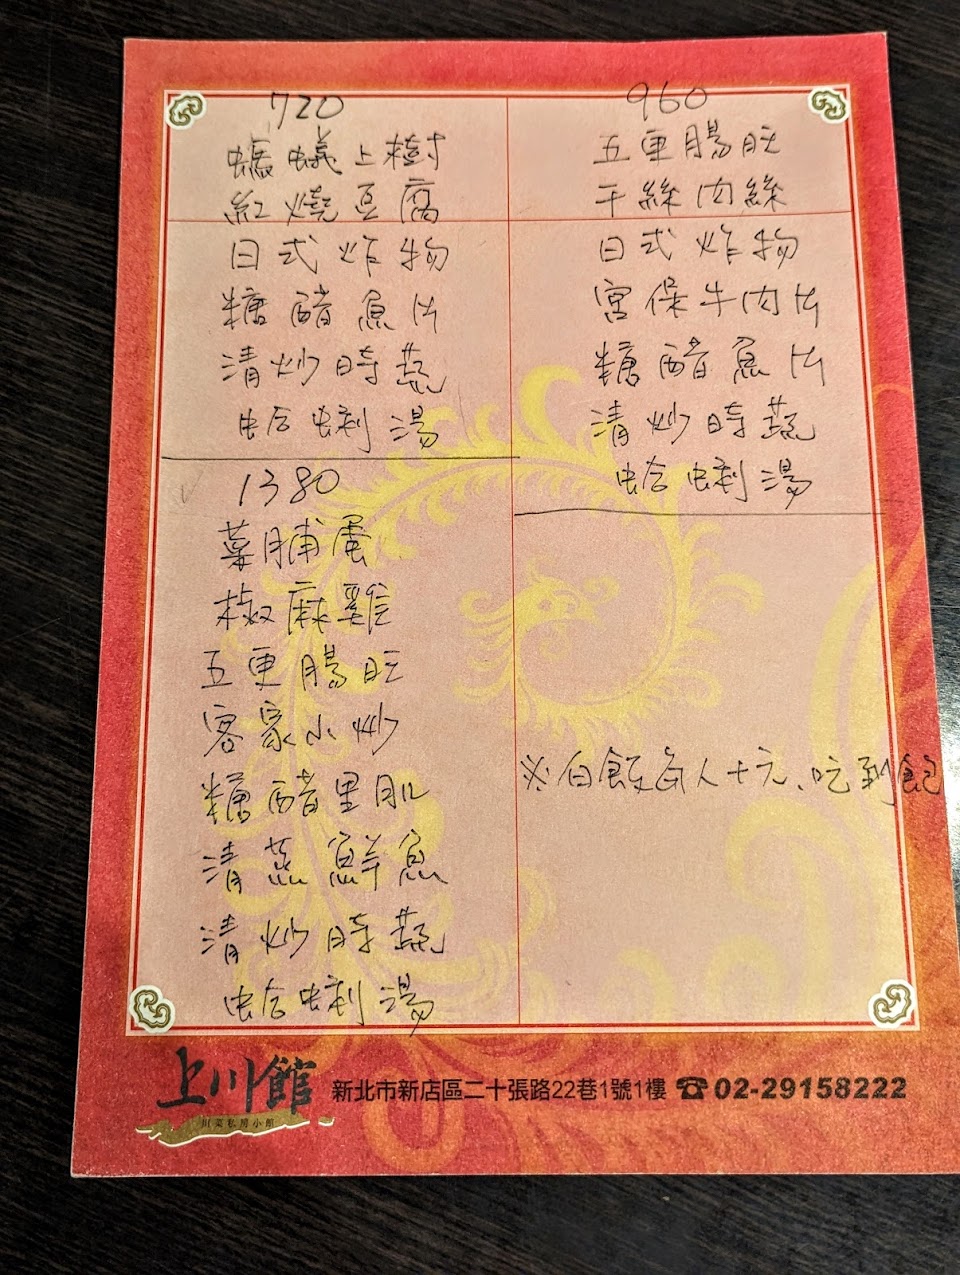 720
螞蟻上樹
紅燒豆腐
日式炸物
糖醋魚片
清炒時蔬
蛤蜊湯
960
五更腸旺
干絲肉絲
日式炸物
宮保牛肉片
糖醋魚片
清炒時蔬
蛤蜊湯
1380
菜脯蛋
椒麻雞
五更腸旺
客家小炒
糖醋里肌
清蒸鮮魚
清炒時蔬
蛤蜊湯
※白飯每人十元、吃到飽
上川館
川菜私房小館
新北市新店區二十張路22巷1號1樓 ☎02-29158222